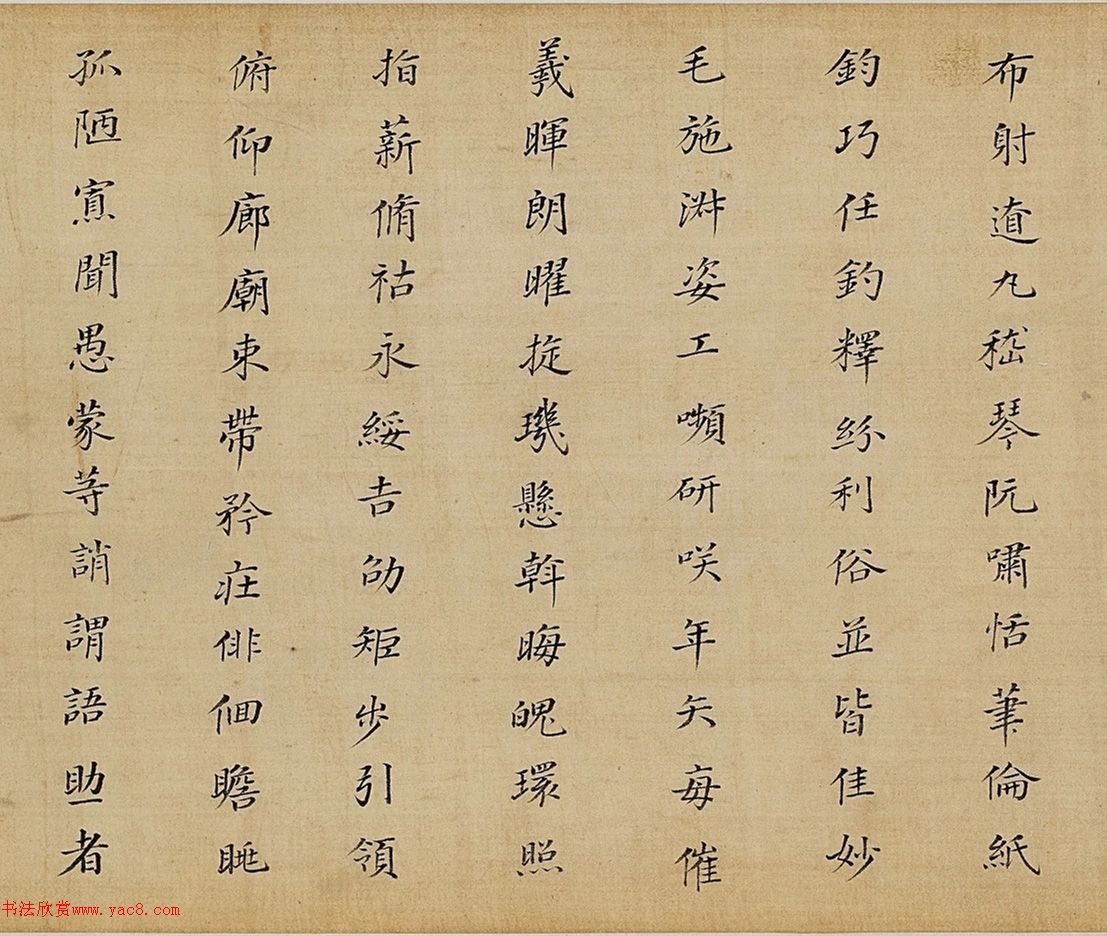 布射遼丸嵇琴阮嘯恬筆倫紙
鈞巧任釣釋紛利俗並皆佳妙
毛施淑姿工嚬研咲年矢每催
羲暉朗曜旋璣懸斡晦魄環照
指薪脩祜永綏吉劭矩步引領
俯仰廊廟束帶矜莊徘徊瞻眺
孤陋寡聞愚蒙等誚謂語助者
书法欣赏www.yac8.com